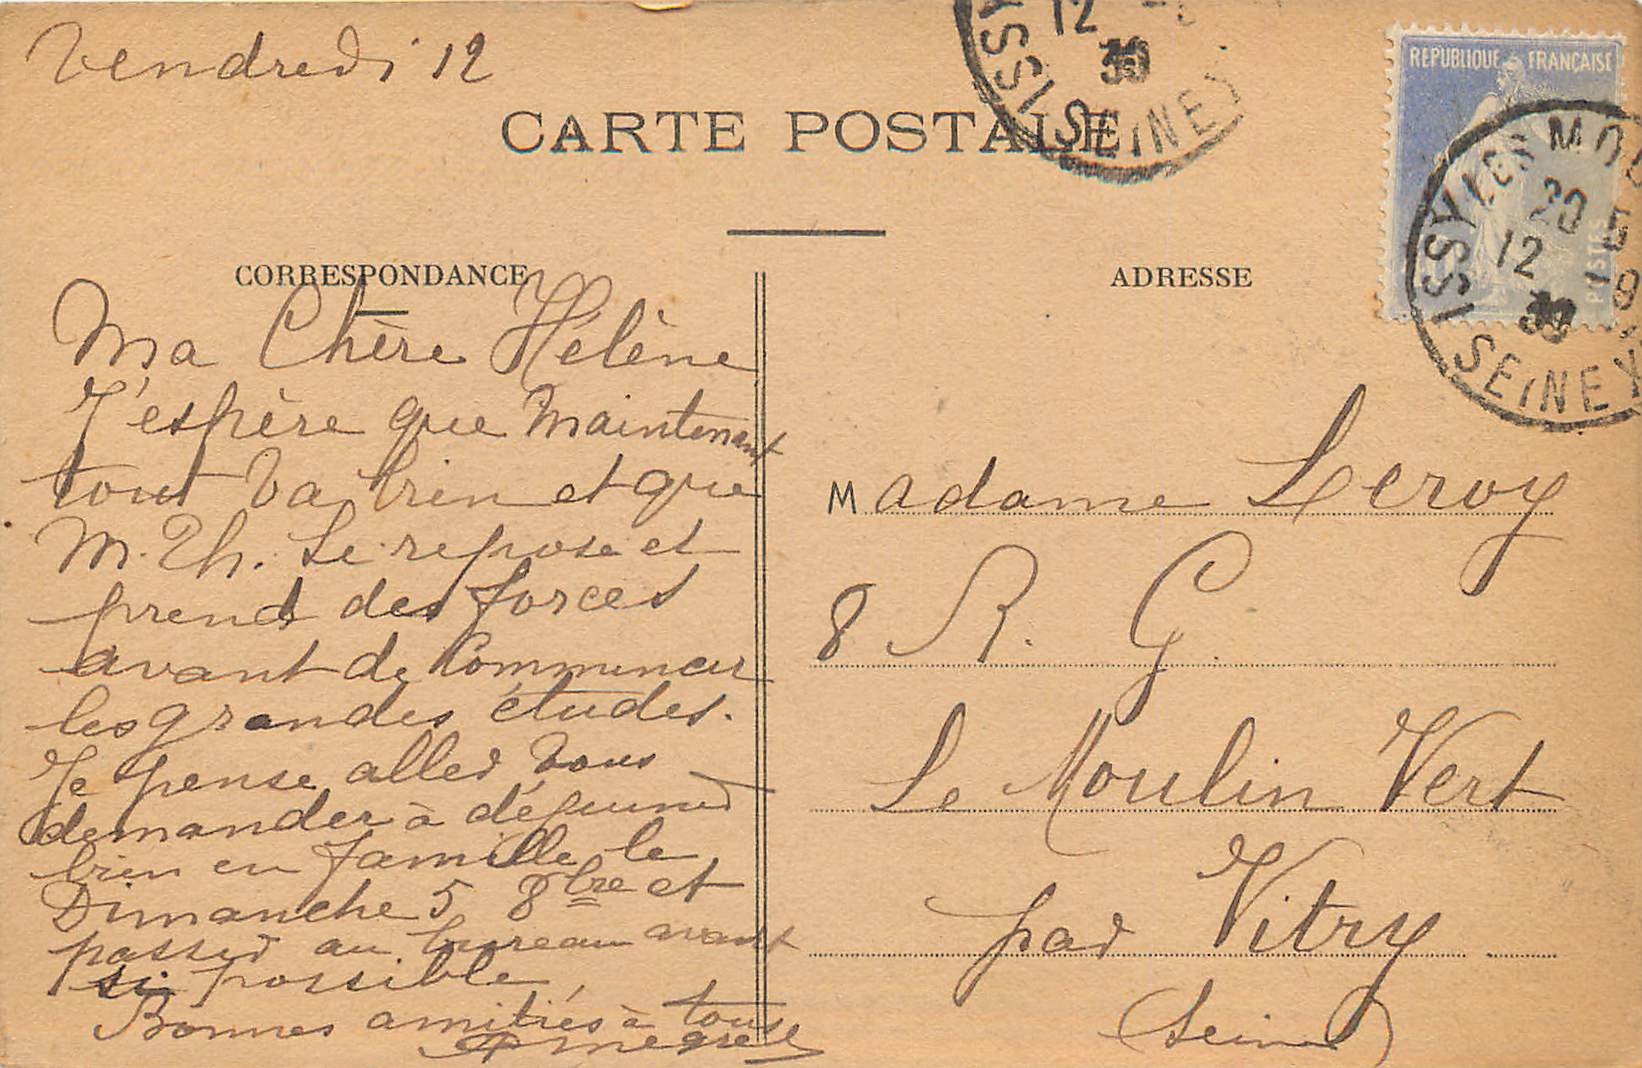 Vendredi 12
CARTE POSTALE
CORRESPONDANCE
Ma Chère Hélène
J'espère que maintenant
tout va bien et que
M. Th. se repose et
prend des forces
avant de commencer
les grandes études.
Je pense aller vous
demander à déjeuner
bien en famille le
Dimanche 5 8bre et
passer au bureau avant
si possible
Bonnes amitiés à tous
ADRESSE
Madame Leroy
8 R. G.
Le Moulin Vert
par Vitry
Seine
REPUBLIQUE FRANÇAISE
POSTES
ISSY LES MOU
20
12 -9
30
SEINE
ISSY
12
30
SEINE